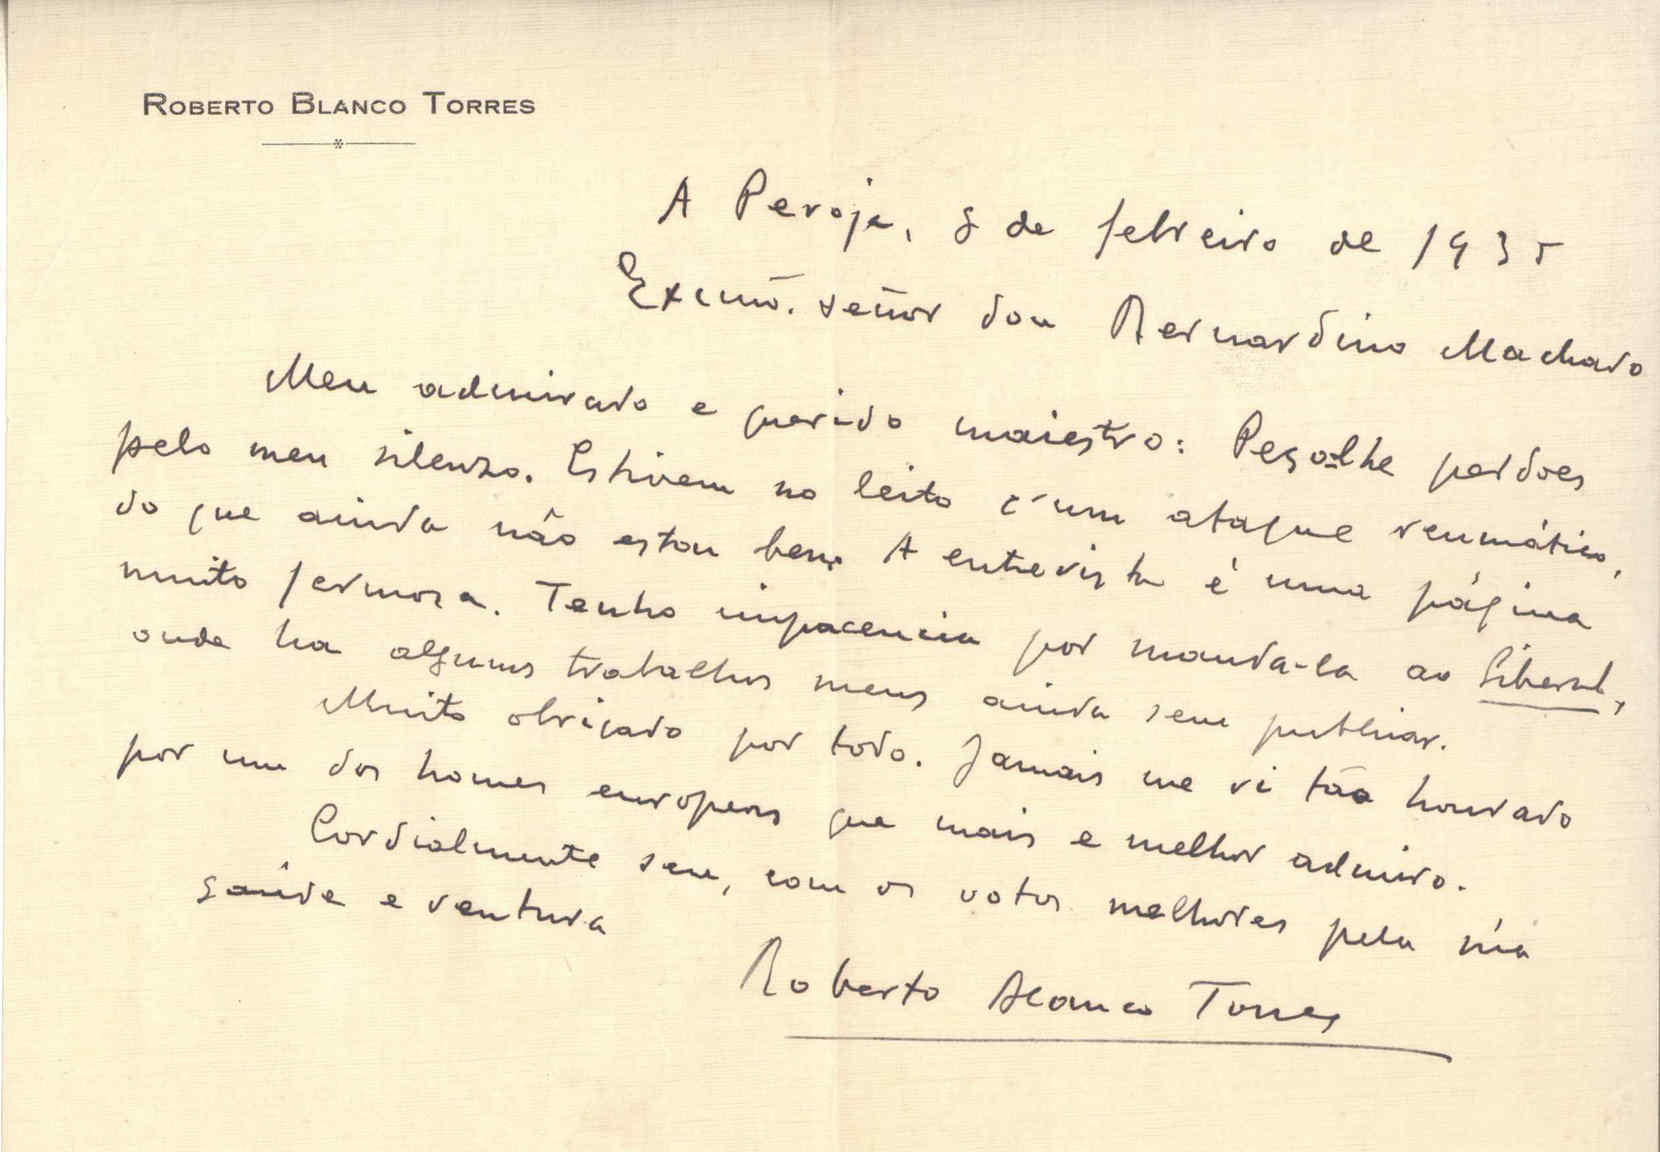 ROBERTO BLANCO TORRES
A Peroja, 8 de febreiro de 1935
Excmō. señor don Bernardino Machado
Meu admirado e querido maiestro: Peço-lhe perdoes
pelo meu silenzo. Estivem no leito c'um ataque reumático,
do que ainda não estou bem. A entrevista é uma página
muito fermosa. Tenho impacencia por manda-la ao Liberal,
onde ha alguns trabalhos meus ainda sem publicar.
Muito obrigado por todo. Jamais me vi tão honrado
por um dos homes europeos que mais e melhor admiro.
Cordialmente seu, com os votos melhores pela
saúde e ventura
Roberto Blanco Torres